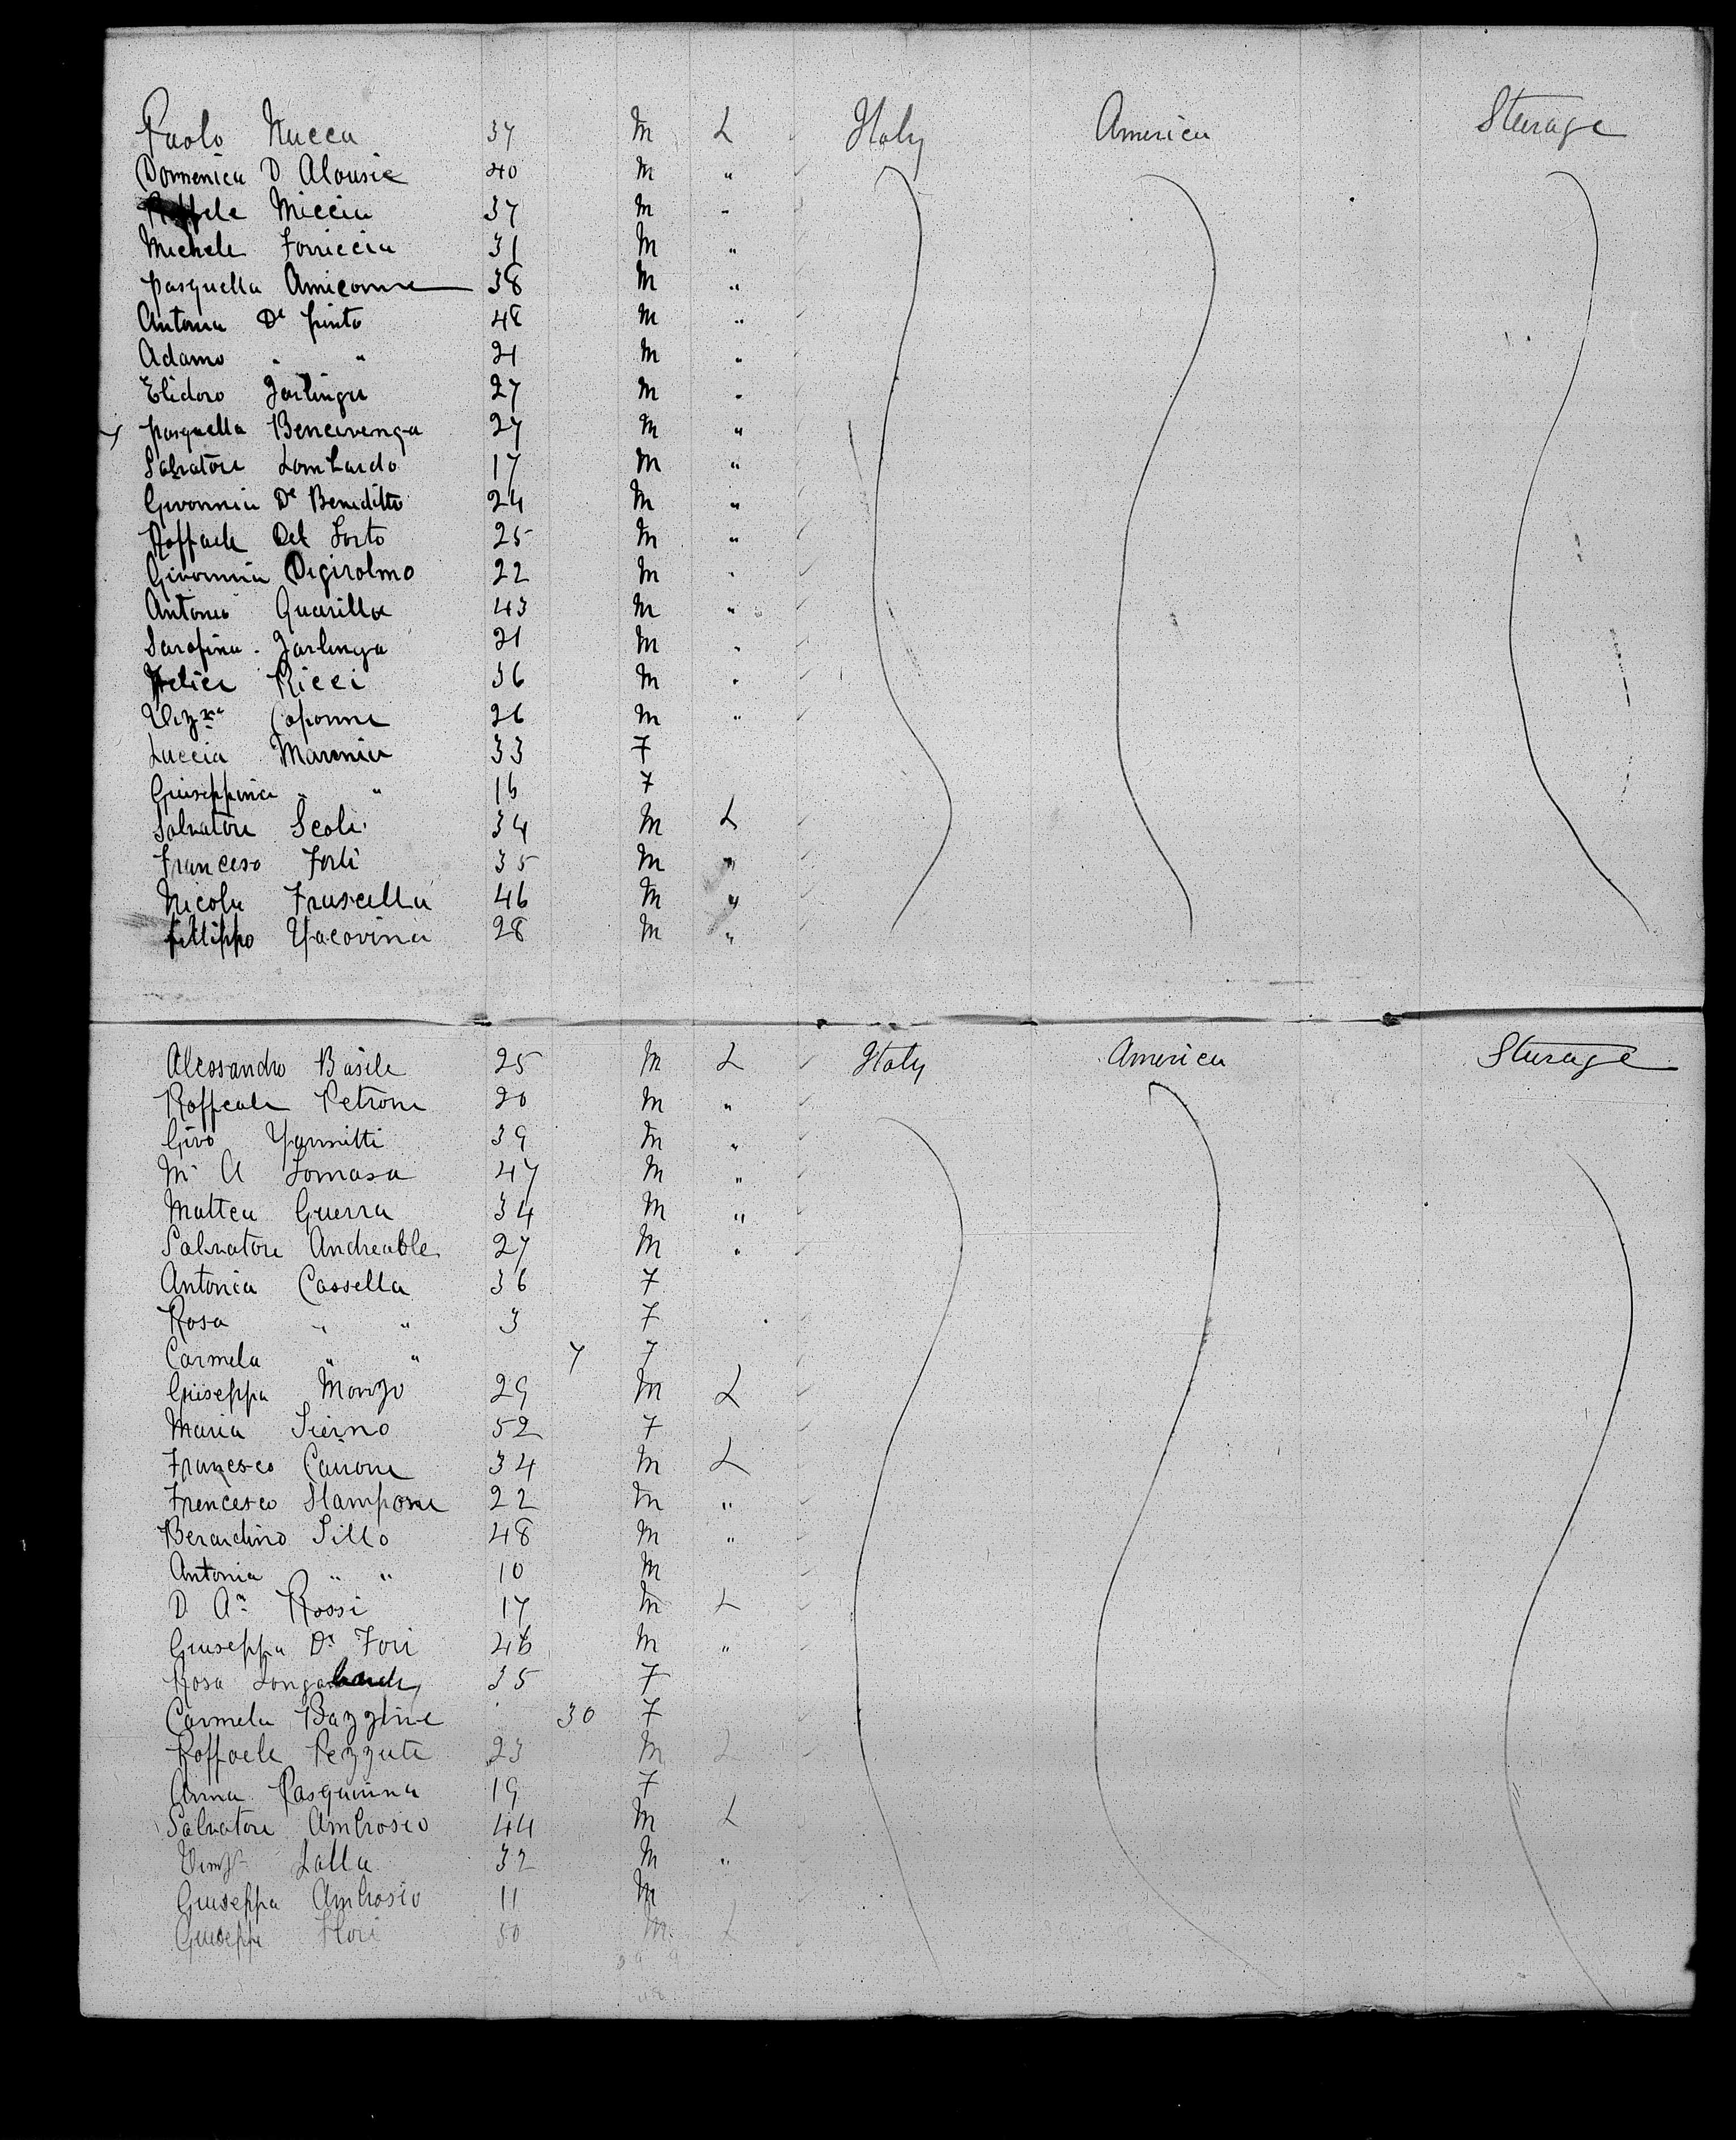 Paolo Nucca 37 M L Italy America Sturage
Domenica D Alousie 40 M "
Miccia 37 M "
Michele Forriccia 31 M "
pasquella Amiconne 38 M "
Antonia De pinto 48 M "
Adamo " " 21 M "
Elidoro Jarlinga 27 M "
pasquella Bencivenga 27 M "
Salvatore Lombardo 17 M "
Givonnia De Beneditto 24 M "
Raffaele Del Sorto 25 M "
Givonnia Degirolmo 22 M "
Antonio Quarilla 43 M "
Sarafina Jarlinga 21 M "
Felice Ricci 36 M "
Caponne 26 M "
Luccia Maronia 33 F
Giuseppina " " 16 F
Salvatore Scoli 34 M L
Franceso Forti 35 M "
Nicola Fruscella 46 M "
fillippo Yacovina 28 M "
Alessandro Basile 25 M L Italy America Sturage
Raffeale Petrone 20 M "
Givo Yannitti 39 M "
M A Tomasa 47 M "
Mattea Guerra 34 M "
Salvatore Andreable 27 M "
Antonia Cassella 36 F
Rosa " " 3 F
Carmela " " 7 F
Giuseppa Monzo 29 M L
Maria Sierno 52 F
Francesco Carrone 34 M L
Frencesco Stampone 22 M "
Berardino Sillo 48 M "
Antonia " " 10 M
D An Rossi 17 M L
Giuseppa De Fori 46 M "
Rosa 35 F
Carmela Bazzline 30 F
Raffaele Pezzute 23 M L
Anna Pasquinna 19 F
Salvatore Ambrosio 44 M L
Lalla 32 M "
Giuseppa Ambrosio 11 M
Giuseppe Flori 50 M L